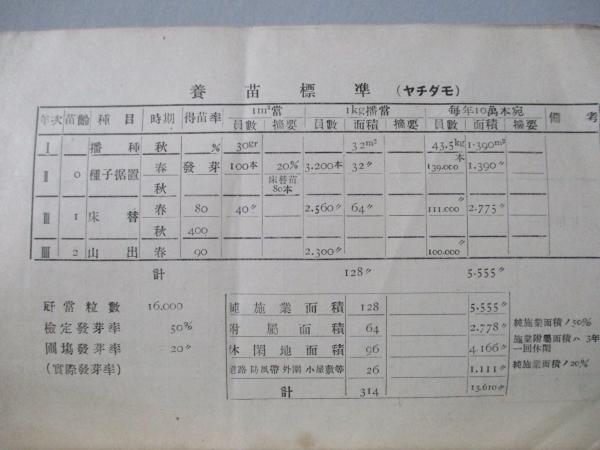 養苗標準（ヤチダモ）
年次 苗齢 種目 時期 得苗率 1m²當 1kg播當 毎年10萬本宛 備考
員數 摘要 員數 面積 摘要 員數 面積 摘要
I 播種 秋 % 30gr 32m² 43.5kg 1.390m²
II 0 種子据置 春 發芽 100本 20% 3.200本 32〃 139.000本 1.390〃
秋 床替苗 80本
III 1 床替 春 80 40〃 2.560〃 64〃 111.000〃 2.775〃
秋 400
IIII 2 山出 春 90 2.300〃 100.000〃
計 128〃 5.555〃
瓩當粒數 16,000
檢定發芽率 50%
圃場發芽率 20〃
(實際發芽率)
純施業面積 128 5.555〃
附屬面積 64 2.778〃 純施業面積ノ50%
休閑地面積 96 4.166〃 施業附屬面積ハ 3年一回休閑
道路 防風帶 外圍 小屋敷等 26 1.111〃 純施業面積ノ20%
計 314 13.610〃